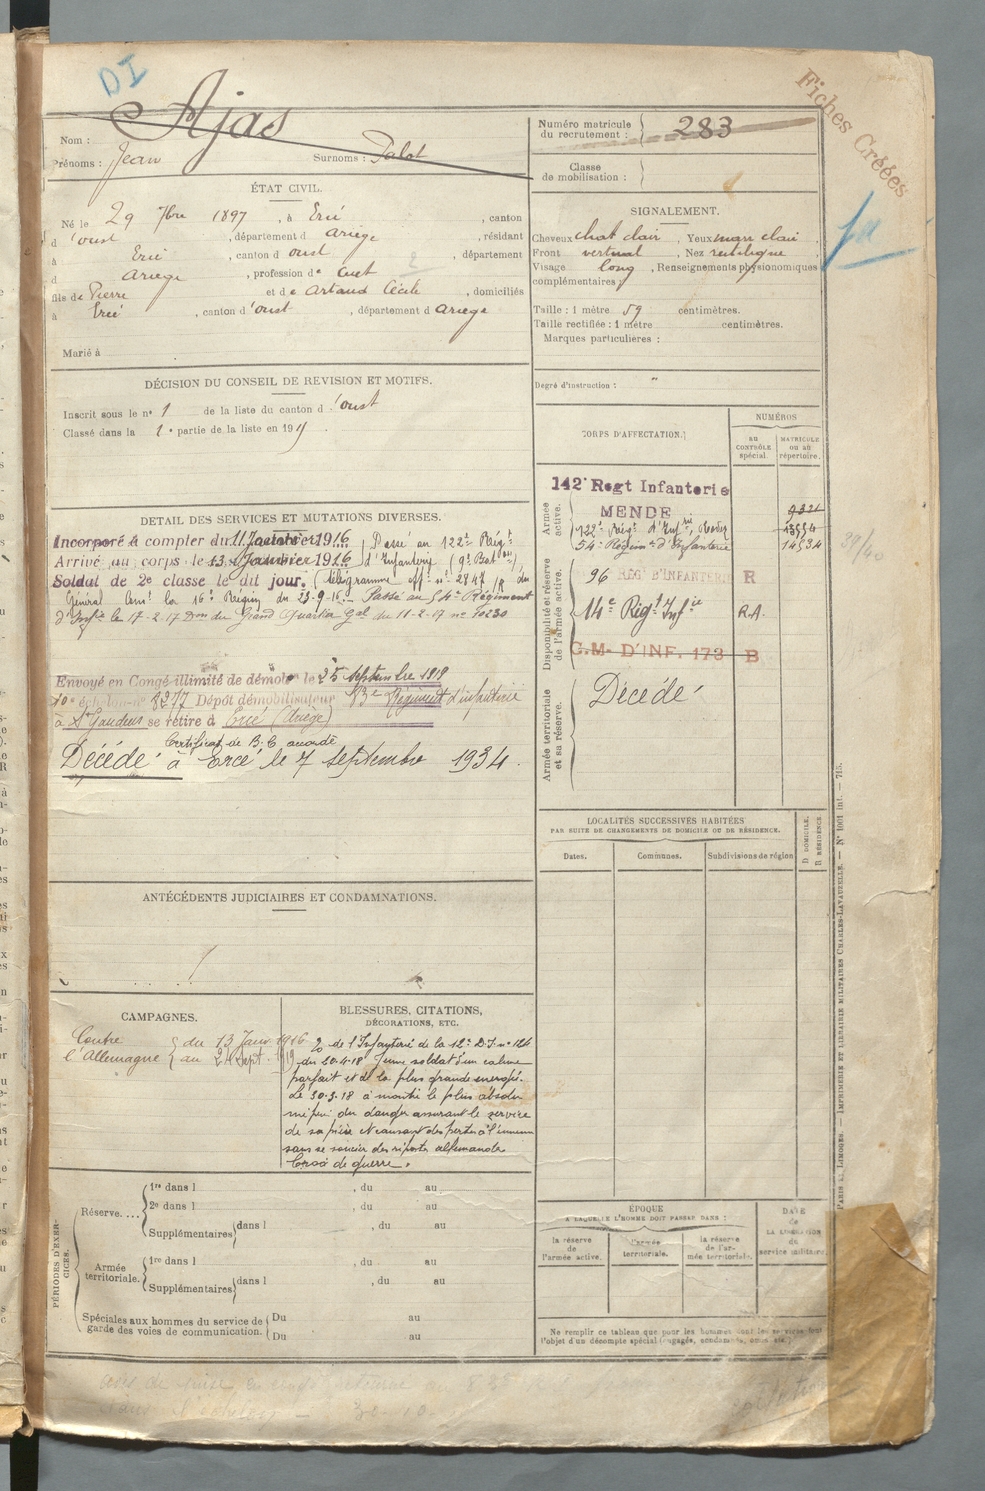 DI
Fiches Créées
Nom : Ajas
Prénoms : Jean Surnoms : Palot
Numéro matricule du recrutement : 283
Classe de mobilisation :
ÉTAT CIVIL.
Né le 29 7bre 1897, à Ercé, canton
d'oust, département d Ariège, résidant
à Ercé, canton d oust, département
d Ariège, profession de
fils de Pierre et de Artaud Cécile, domiciliés
à Ercé, canton d'oust, département d Ariege
Marié à
SIGNALEMENT.
Cheveux chat clair, Yeux marr clair,
Front vertical, Nez rectiligne
Visage long, Renseignements physionomiques
complémentaires :
Taille : 1 mètre 59 centimètres.
Taille rectifiée : 1 mètre centimètres.
Marques particulières :
Degré d'instruction : "
DÉCISION DU CONSEIL DE REVISION ET MOTIFS.
Inscrit sous le n° 1 de la liste du canton d'oust
Classé dans la 1e partie de la liste en 191
CORPS D'AFFECTATION.
NUMÉROS
AU CONTRÔLE spécial.
MATRICULE ou au répertoire.
Armée active.
142e Regt Infanterie
MENDE 9321
122e Régt d'Infrie Rodez 13554
54e Régiment d'Infanterie 14534
39/40
Disponibilité et réserve de l'armée active.
96 REGt D'INFANTERIE R
14e Régt Infie R.A.
C.M. D'INF. 173 B
Armée territoriale et sa réserve.
Décédé
DETAIL DES SERVICES ET MUTATIONS DIVERSES.
Incorporé à compter du 11 Janvier 1916 Passé au 122e Régt
Arrivé au corps le 13 Janvier 1916 d'Infanterie (9e Baton),
Soldat de 2e classe le dit jour. (télégramme offel n° 2847 du
Général Comt la 16e Région du 23-9-16 Passé au 54e Régiment
d'Infie le 17-2-17 Don du Grand Quartier Gal du 11-2-17 no 10230
Envoyé en Congé illimité de démob le 25 Septembre 1919
10e échelon n° 8277 Dépôt démobilisateur 83e Régiment d'infanterie
à St Gaudens se retire à Ercé (Ariège)
Certificat de B. C. accordé
Décédé à Ercé le 7 septembre 1934.
LOCALITÉS SUCCESSIVES HABITÉES
PAR SUITE DE CHANGEMENTS DE DOMICILE OU DE RÉSIDENCE.
Dates. Communes. Subdivisions de région
D. DOMICILE.
R. RÉSIDENCE.
ANTÉCÉDENTS JUDICIAIRES ET CONDAMNATIONS.
CAMPAGNES.
Contre l'Allemagne du 13 Janv. 1916
au 24 Sept. 1919
BLESSURES, CITATIONS,
DÉCORATIONS, ETC.
de l'Infanterie de la 12e D.I. n° 126
du 30-4-18 Jeune soldat d'un calme
parfait et de la plus grande energie.
Le 30-3-18 a montré le plus absolu
mépris du danger assurant le service
de sa pièce et causant des pertes à l'ennemi
sans se soucier des ripostes allemandes
Croix de guerre.
PÉRIODES D'EXERCICES.
Réserve....
1re dans l , du au
2e dans l , du au
Supplémentaires dans l , du au
Armée territoriale.
1re dans l , du au
Supplémentaires dans l , du au
Spéciales aux hommes du service de garde des voies de communication.
Du au
Du au
ÉPOQUE
A LAQUELLE L'HOMME DOIT PASSER DANS :
la réserve de l'armée active.
l'armée territoriale.
la réserve de l'armée territoriale.
DATE de LA LIBÉRATION du service militaire.
Ne remplir ce tableau que pour les hommes dont les services font
l'objet d'un décompte spécial (engagés, condamnés, omis etc.)
PARIS ET LIMOGES. — IMPRIMERIE ET LIBRAIRIE MILITAIRES CHARLES-LAVAUZELLE. — N° 1001 Int. — 715.